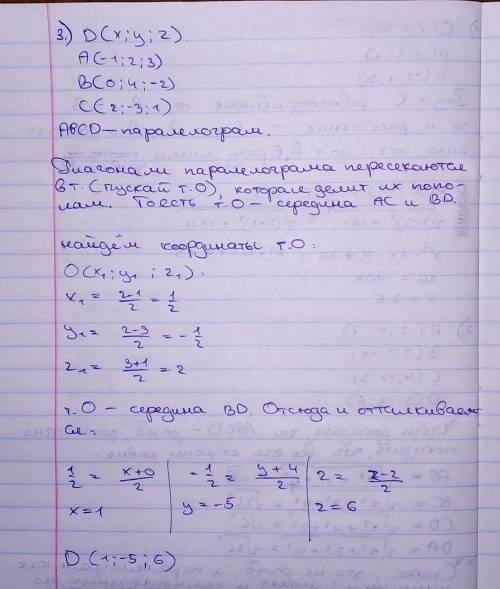 3.) D(x; y; z).
A(-1; 2; 3)
B(0; 4; -2)
C(2; -3; 1)
ABCD — паралелограм.
Диагонали паралелограма пересекаются
в т. (пускай т. О), которая делит их попо-
лам. Тоесть т. О - середина AC и BD.
найдём координаты т. О:
O(x₁; y₁; z₁):
x₁ = (2-1)/2 = 1/2
y₁ = (2-3)/2 = -1/2
z₁ = (3+1)/2 = 2
т. О - середина BD. Отсюда и отталкиваем-
ся:
1/2 = (x+0)/2 | -1/2 = (y+4)/2 | 2 = (z-2)/2
x=1 | y=-5 | z=6
D (1; -5; 6)